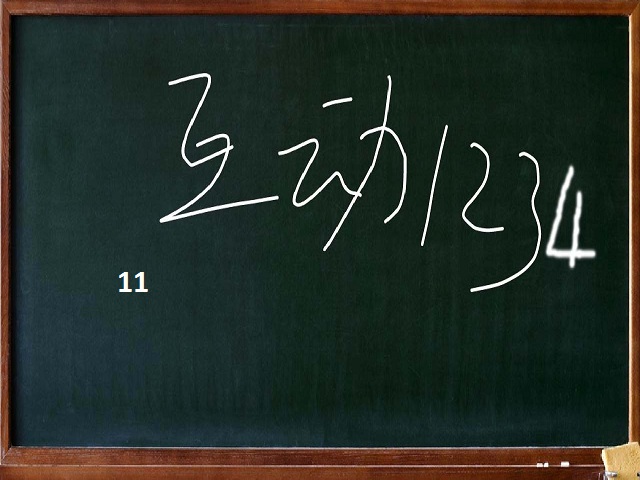 互动1234
11